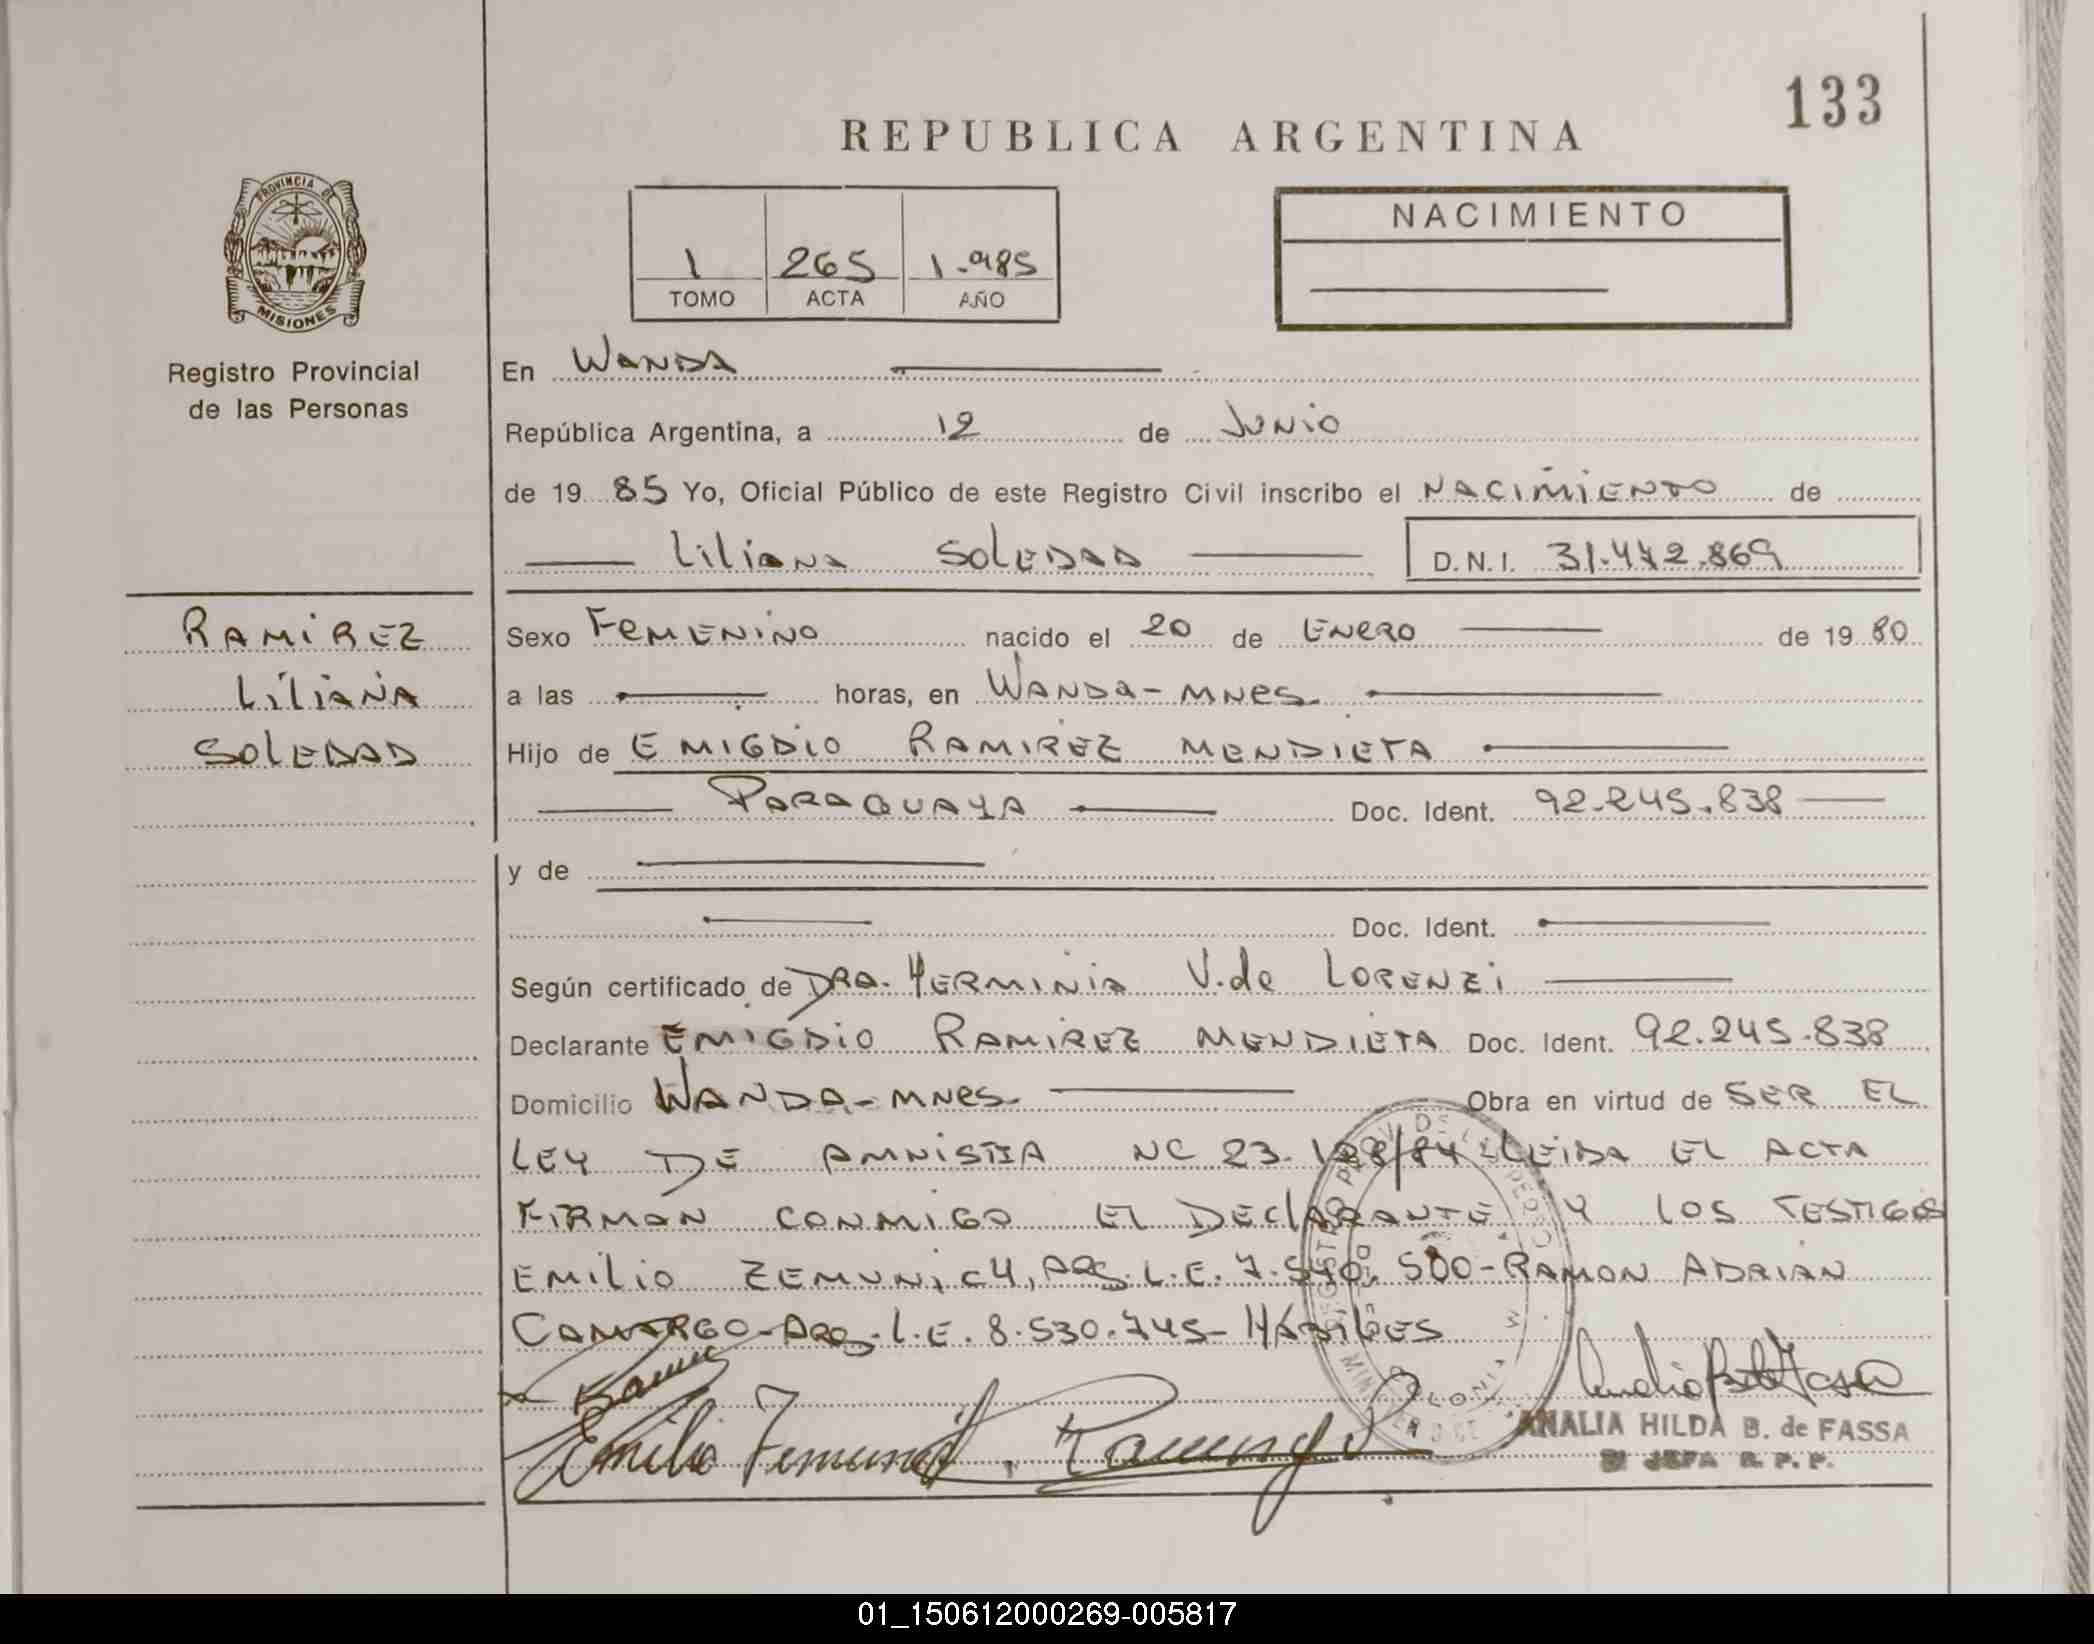 133
REPUBLICA ARGENTINA
PROVINCIA DE
MISIONES
Registro Provincial
de las Personas
1 265 1.985
TOMO ACTA AÑO
NACIMIENTO
En WANDA
República Argentina, a 12 de Junio
de 1985 Yo, Oficial Público de este Registro Civil inscribo el NACIMIENTO de
Liliana SOLEDAD D.N.I. 31.442.869
RAMIREZ
LILIANA
SOLEDAD
Sexo FEMENINO nacido el 20 de ENERO de 1980
a las horas, en WANDA-MNES.
Hijo de EMIGDIO RAMIREZ MENDIETA
PARAGUAYA Doc. Ident. 92.245.838
y de
Doc. Ident.
Según certificado de DRA. HERMINIA V. de LORENZI
Declarante EMIGDIO RAMIREZ MENDIETA Doc. Ident. 92.245.838
Domicilio WANDA-MNES. Obra en virtud de SER EL
LEY DE AMNISTIA Nº 23.128/84 LEIDA EL ACTA
FIRMAN CONMIGO EL DECLARANTE Y LOS TESTIGOS
EMILIO ZEMUNICH, ARG. L.E. 7.540.500-RAMON ADRIAN
CAMARGO-ARG. L.E. 8.530.745- HABILES
Emilio Zemunich
ANALIA HILDA B. de FASSA
JEFA R. P. P.
01_150612000269-005817